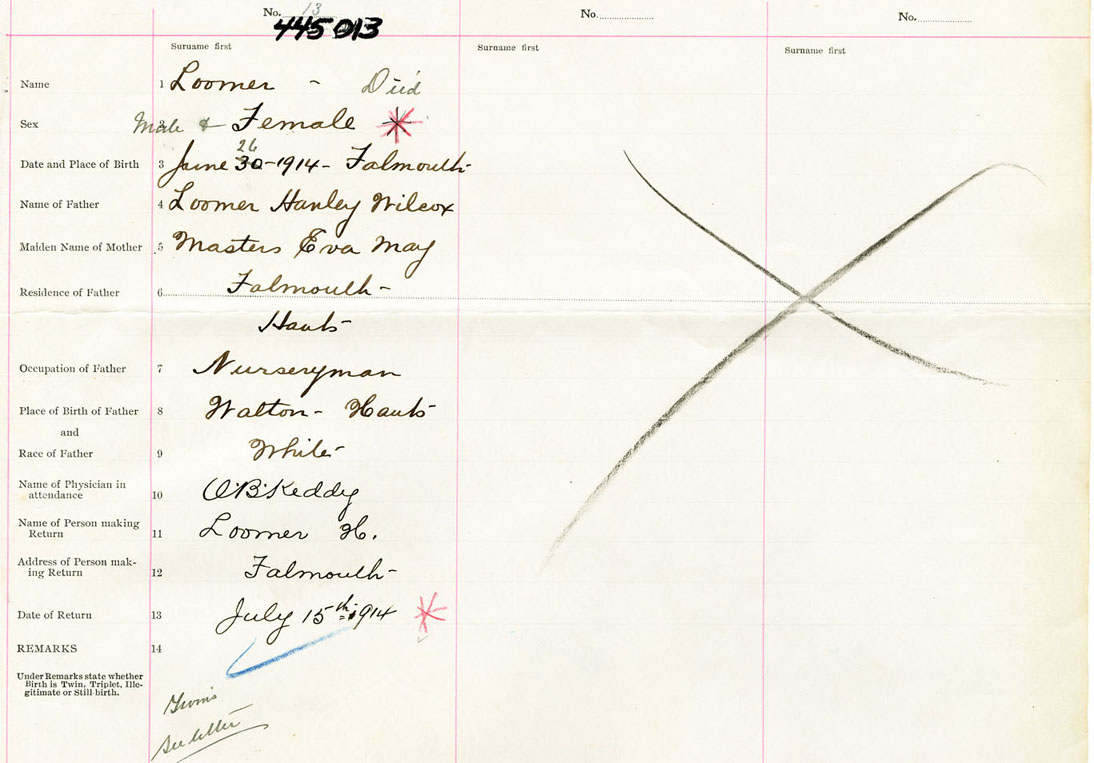 No. 13
445013
No.
No.
Surname first
Surname first
Surname first
Name 1 Loomer - Died
Sex 2 Male & Female *
26
Date and Place of Birth 3 June 30-1914- Falmouth-
Name of Father 4 Loomer Hanley Wilcox
Maiden Name of Mother 5 Masters Eva May
Residence of Father 6 Falmouth-
Hants-
Occupation of Father 7 Nurseryman
Place of Birth of Father 8 Walton- Hants-
and
Race of Father 9 White-
Name of Physician in
attendance 10 O B Keddy
Name of Person making
Return 11 Loomer H.
Address of Person mak-
ing Return 12 Falmouth-
Date of Return 13 July 15th 1914 *
REMARKS 14
Under Remarks state whether
Birth is Twin, Triplet, Ille-
gitimate or Still birth.
Twins
See letter